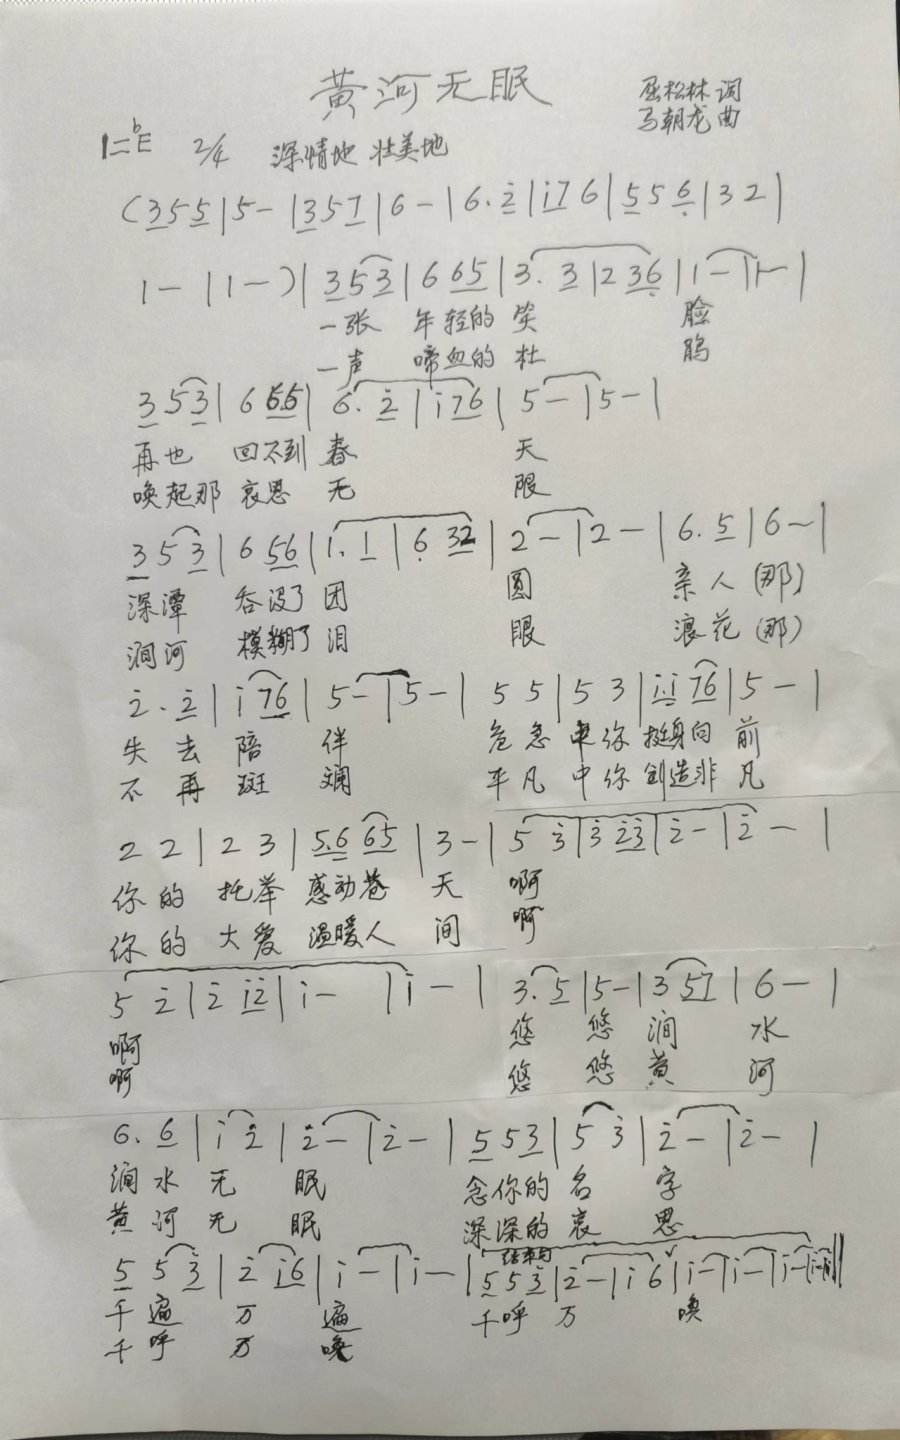 黄河无眠
屈松林 词
马朝龙 曲
1=♭E 2/4 深情地 壮美地
(3 5 5 | 5 - | 3 5 7 | 6 - | 6. 2̇ | i̇ 7 6 | 5 5 6̣ | 3 2 |
1 - | 1 - ) | 3 5 3 | 6 6 5 | 3. 3 | 2 3 6̣ | 1 - | 1 - |
一张 年轻的 笑 脸
一声 啼血的 杜 鹃
3 5 3 | 6 6 5 | 6. 2̇ | i̇ 7 6 | 5 - | 5 - |
再也 回不到 春 天
唤起那 哀思 无 限
3 5 3 | 6 5 6 | 1. 1 | 6̣ 3 2 | 2 - | 2 - | 6. 5 | 6 - |
深潭 吞没了 团 圆 亲人(那)
涧河 模糊了 泪 眼 浪花(那)
2̇. 2̇ | i̇ 7 6 | 5 - | 5 - | 5 5 | 5 3 | i̇ i̇ 7 6 | 5 - |
失去 陪 伴 危急 你 挺身向 前
不再 斑 斓 平凡 中你 创造非 凡
2 2 | 2 3 | 5.6 6 5 | 3 - | 5 3̇ | 3̇ 2̇ 3̇ | 2̇ - | 2̇ - |
你的 托举 感动苍 天 啊
你的 大爱 温暖人 间 啊
5 2̇ | 2̇ i̇ 2̇ | i̇ - | i̇ - | 3. 5 | 5 - | 3 5 7 | 6 - |
啊 悠 悠 涧 水
啊 悠 悠 黄 河
6. 6 | i̇ 2̇ | 2̇ - | 2̇ - | 5 5 3 | 5 3̇ | 2̇ - | 2̇ - |
涧水 无 眠 念你的 名 字
黄河 无 眠 深深的 哀 思
结束句
5 5 3̇ | 2̇ i̇ 6 | i̇ - | i̇ - | 5 5 3̇ | 2̇ - | i̇ 6 | i̇ - | i̇ - | i̇ - | i̇ - ||
千遍 万 遍 千呼 万 唤
千呼 万 唤